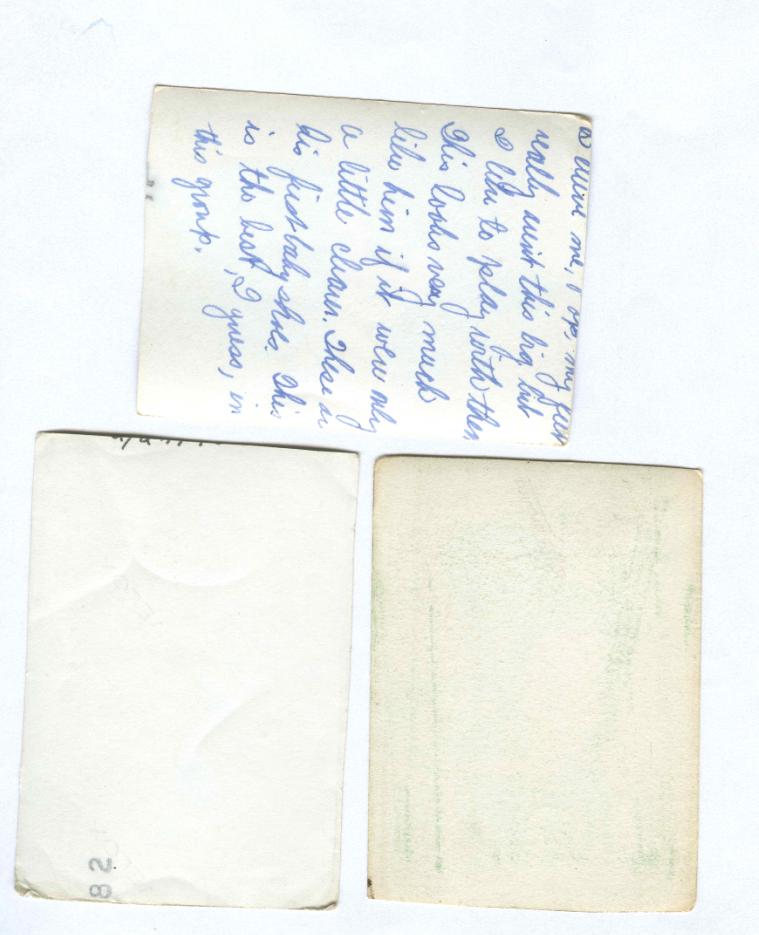 me, my
really ain't this big but
I like to play with them
This looks very much
like him if it were only
a little clearer. These
his first baby shoes. This
is the best, I guess, in
this group.
82